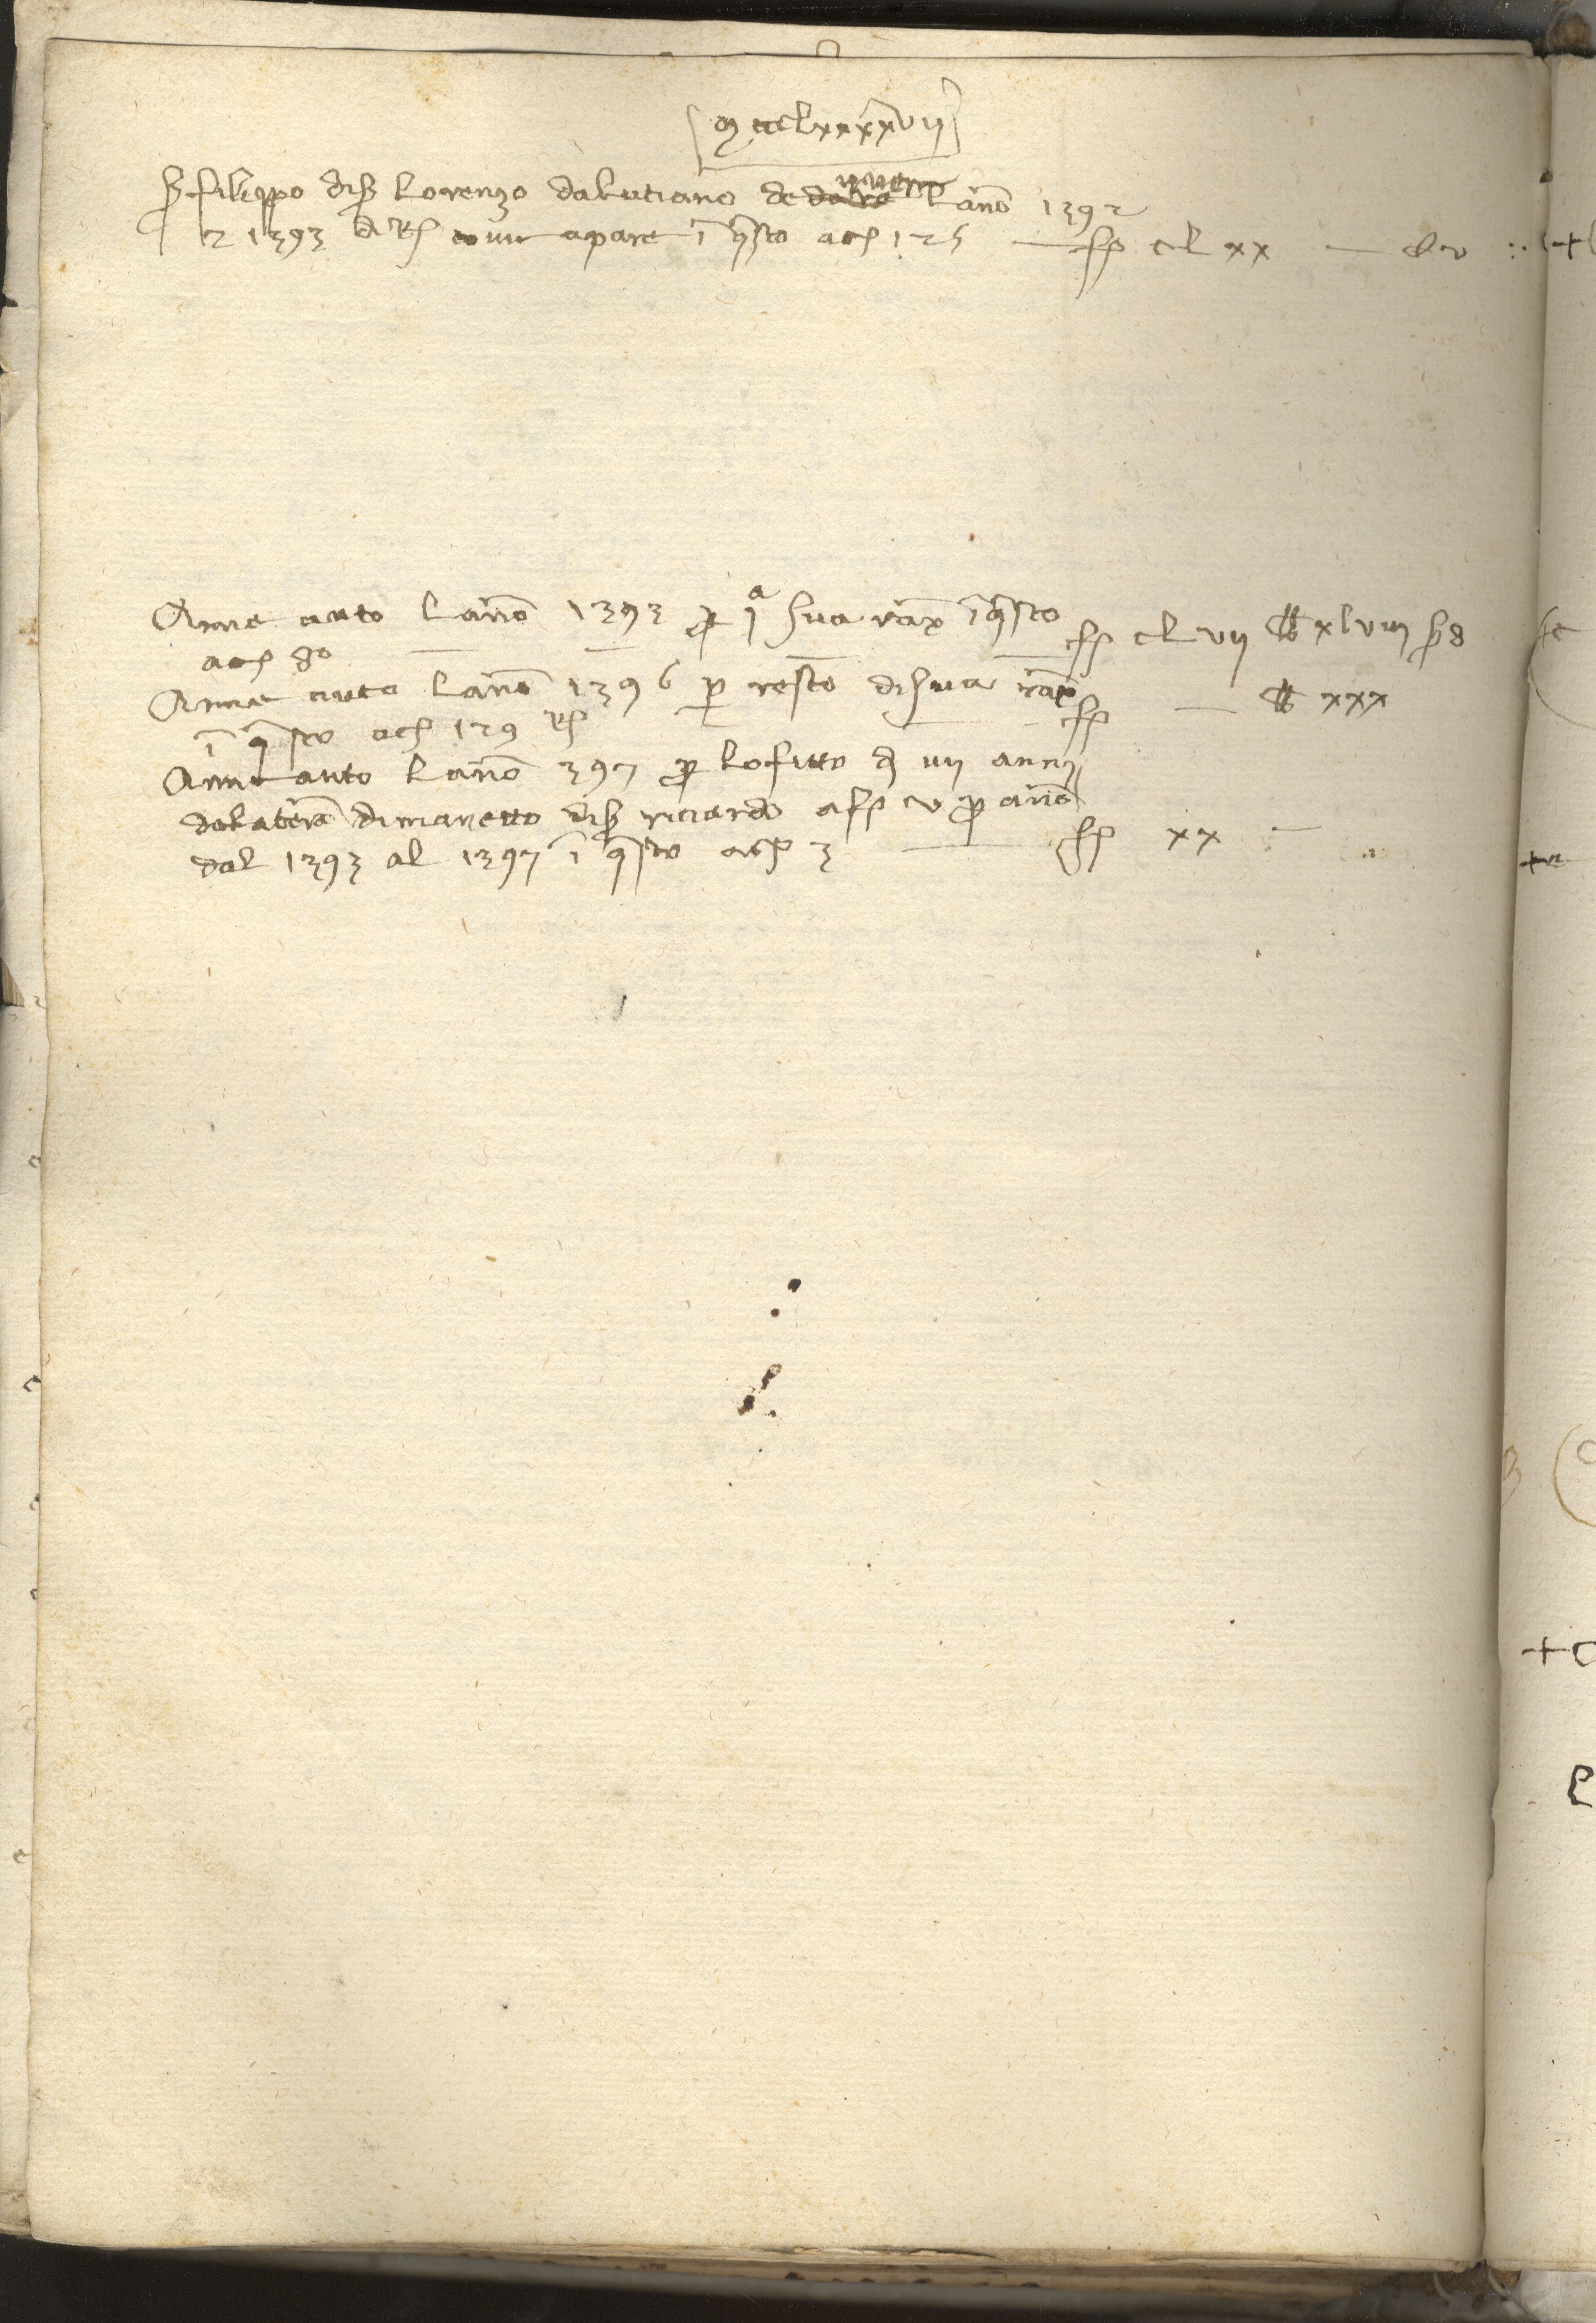 m ccclxxxxvii
S filippo di S Lorenzo dalutiano de dare avere lano 1392
e 1393 come apare i qsto a c 125 — st cl xx — lb v
Anne auto lano 1393 p ia sua rax i qsto
a c 80 — st cl vii lb xlviii s 8
Anne auto lano 1396 p resto di sua rax
i qsto a c 129 — st — lb xxx
Anne auto lano 397 p lo fitto d iiii anni
dela tera di manetto di S riciardo a st v p ano
dal 1393 al 1397 i qsto a c 3 — st xx —